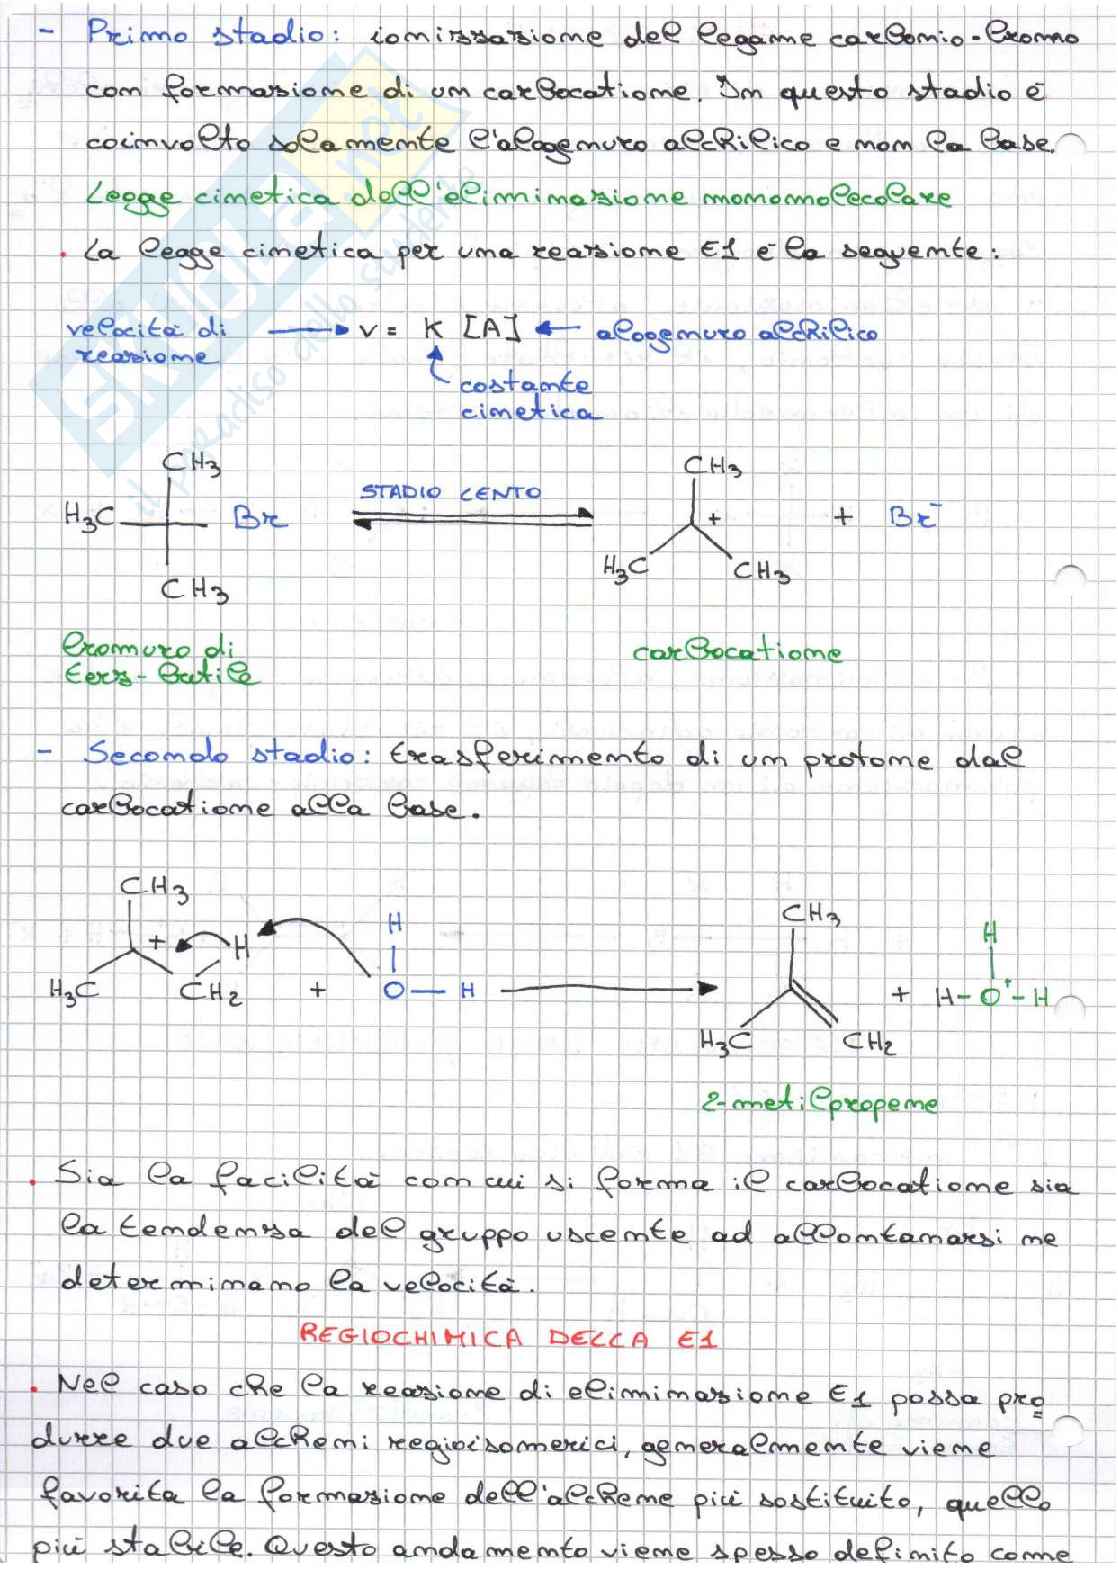 - Primo stadio: ionizzazione del legame carbonio-bromo
con formazione di un carbocatione. In questo stadio è
coinvolto solamente l'alogenuro alchilico e non la base.
Legge cinetica dell'eliminazione monomolecolare
. La legge cinetica per una reazione E1 è la seguente:
velocità di reazione → v = K [A] ← alogenuro alchilico
costante
cinetica
CH3 CH3
STADIO LENTO
H3C Br + + Br-
H3C CH3
CH3
bromuro di carbocatione
terz-butile
- Secondo stadio: trasferimento di un protone dal
carbocatione alla base.
CH3 H CH3 H
+ H
H3C CH2 + O - H + H-O+-H
H3C CH2
2-metilpropene
. Sia la facilità con cui si forma il carbocatione sia
la tendenza del gruppo uscente ad allontanarsi ne
determinano la velocità.
REGIOCHIMICA DELLA E1
. Nel caso che la reazione di eliminazione E1 possa pro
durre due alcheni regioisomerici, generalmente viene
favorita la formazione dell'alchene più sostituito, quello
più stabile. Questo andamento viene spesso definito come
SKUOLA.net
il paradiso dello studente